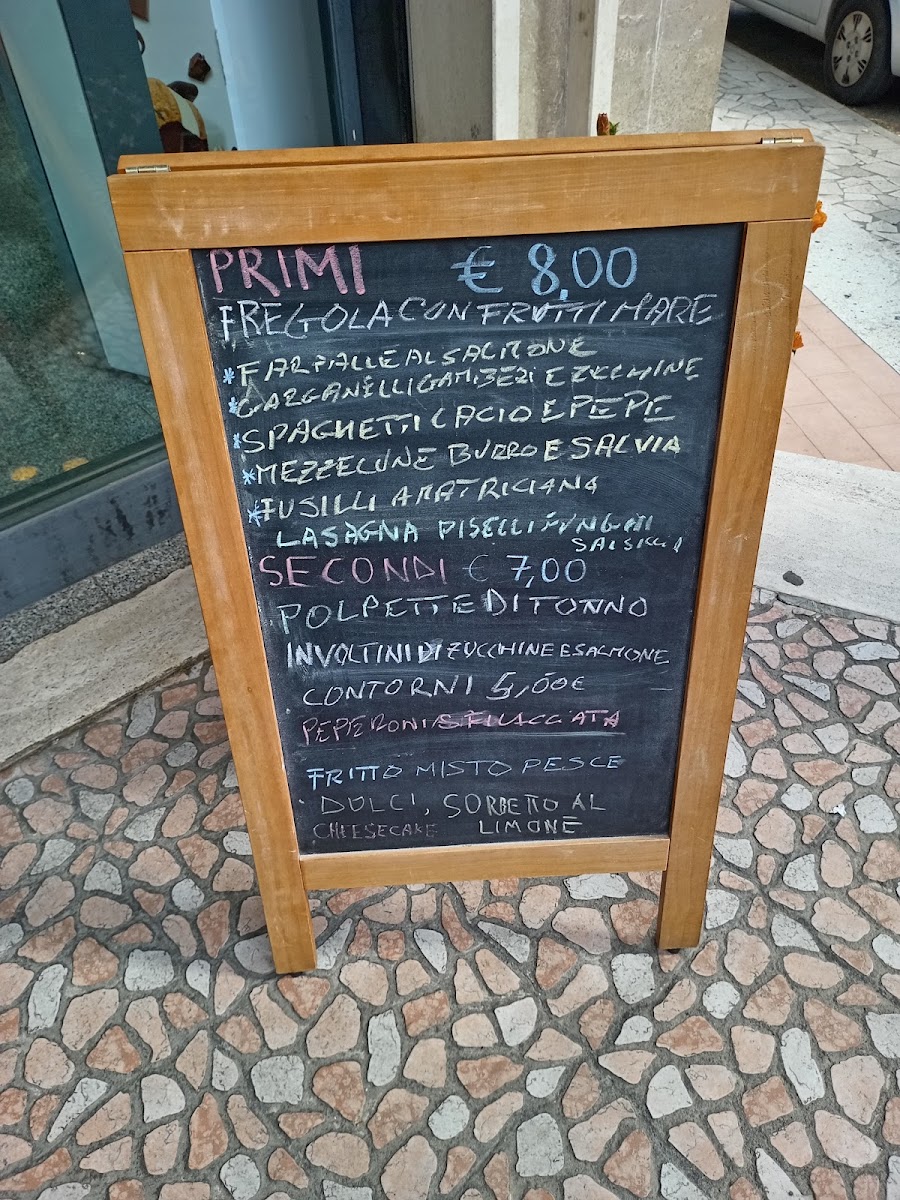 PRIMI € 8,00
FREGOLA CON FRUTTI MARE
*FARFALLE AL SALMONE
*GARGANELLI GAMBERI E ZUCCHINE
*SPAGHETTI CACIO E PEPE
*MEZZELUNE BURRO E SALVIA
*FUSILLI AMATRICIANA
LASAGNA PISELLI FUNGHI
SECONDI € 7,00
POLPETTE DI TONNO
INVOLTINI DI ZUCCHINE E SALMONE
CONTORNI 5,00€
PEPERONI SFILACCIATA
FRITTO MISTO PESCE
DOLCI, SORBETTO AL
CHEESECAKE LIMONE